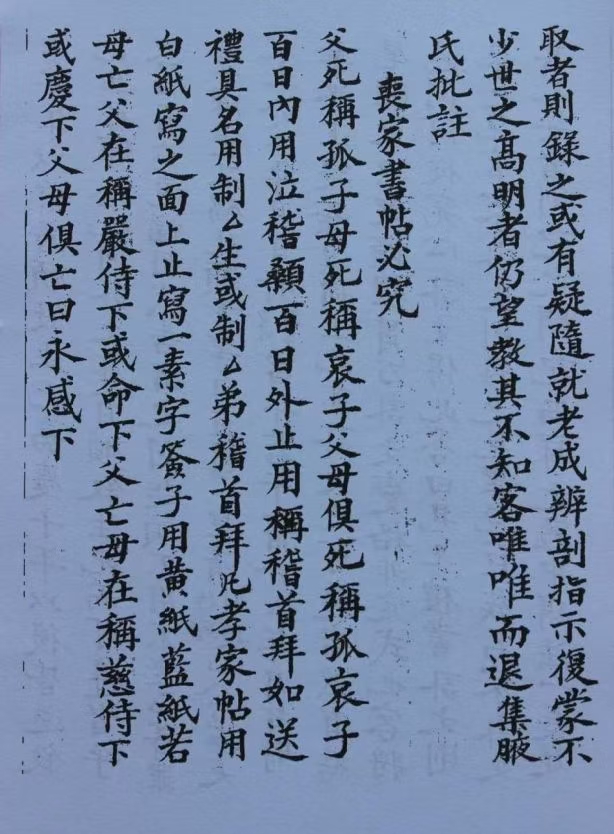 取者則錄之或有疑隨就老成辨剖指示復蒙不
少世之高明者仍望教其不知客唯唯而退集腋
氏批註
喪家書帖必究
父死稱孤子母死稱哀子父母俱死稱孤哀子
百日內用泣稽顙百日外止用稱稽首拜如送
禮具名用制厶生或制厶弟稽首拜凡孝家帖用
白紙寫之面上止寫一素字簽子用黃紙藍紙若
母亡父在稱嚴侍下或命下父亡母在稱慈侍下
或慶下父母俱亡曰永感下